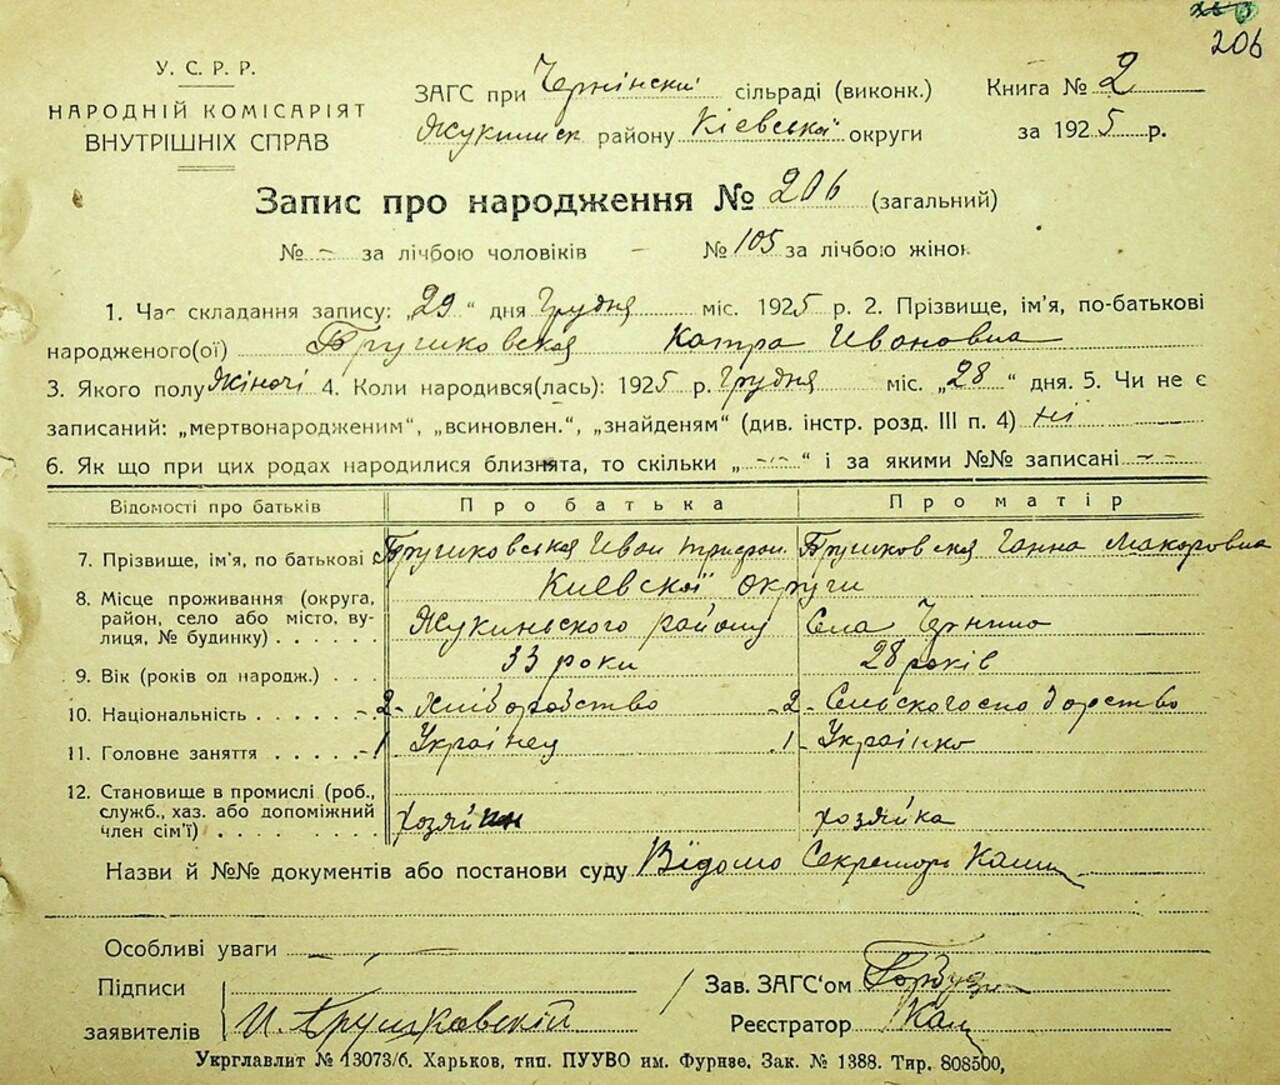 206
У. С. Р. Р.
НАРОДНІЙ КОМІСАРІЯТ
ВНУТРІШНІХ СПРАВ
ЗАГС при Чернінскій сільраді (виконк.)
Жукинск району Кіевської округи
Книга № 2
за 1925 р.
Запис про народження № 206 (загальний)
№ - за лічбою чоловіків - № 105 за лічбою жінок
1. Час складання запису: „29“ дня Грудня міс. 1925 р. 2. Прізвище, ім'я, по-батькові
народженого(ої) Ивановна
3. Якого полу Жіночі 4. Коли народився(лась): 1925 р. Грудня міс. „28“ дня. 5. Чи не є
записаний: „мертвонародженим“, „всиновлен.“, „знайденям“ (див. інстр. розд. III п. 4) ні
6. Як що при цих родах народилися близнята, то скільки „ -- “ і за якими №№ записані --
Відомості про батьків Про батька Про матір
7. Прізвище, ім'я, по батькові Иван Ганна Макаровна
Киевскої округи
8. Місце проживання (округа,
район, село або місто, ву-
лиця, № будинку) . . . . . . Жукиньского району Села
9. Вік (років од народж.) . . . 33 роки 28 років
10. Національність . . . . . . -2- Хліборобство -2- Сельскогосподарство
11. Головне заняття . . . . . -1 Украінец .1- Украінка
12. Становище в промислі (роб.,
служб., хаз. або допоміжний
член сім'ї) . . . . . . . . хозяйин хозяйка
Назви й №№ документів або постанови суду Відомо Секретарь
Особливі уваги
Підписи Зав. ЗАГС'ом
заявителів И. Реєстратор
Укрглавлит № 13073/6. Харьков, тип. ПУУВО им. Фурнзе. Зак. № 1388. Тир. 808500,